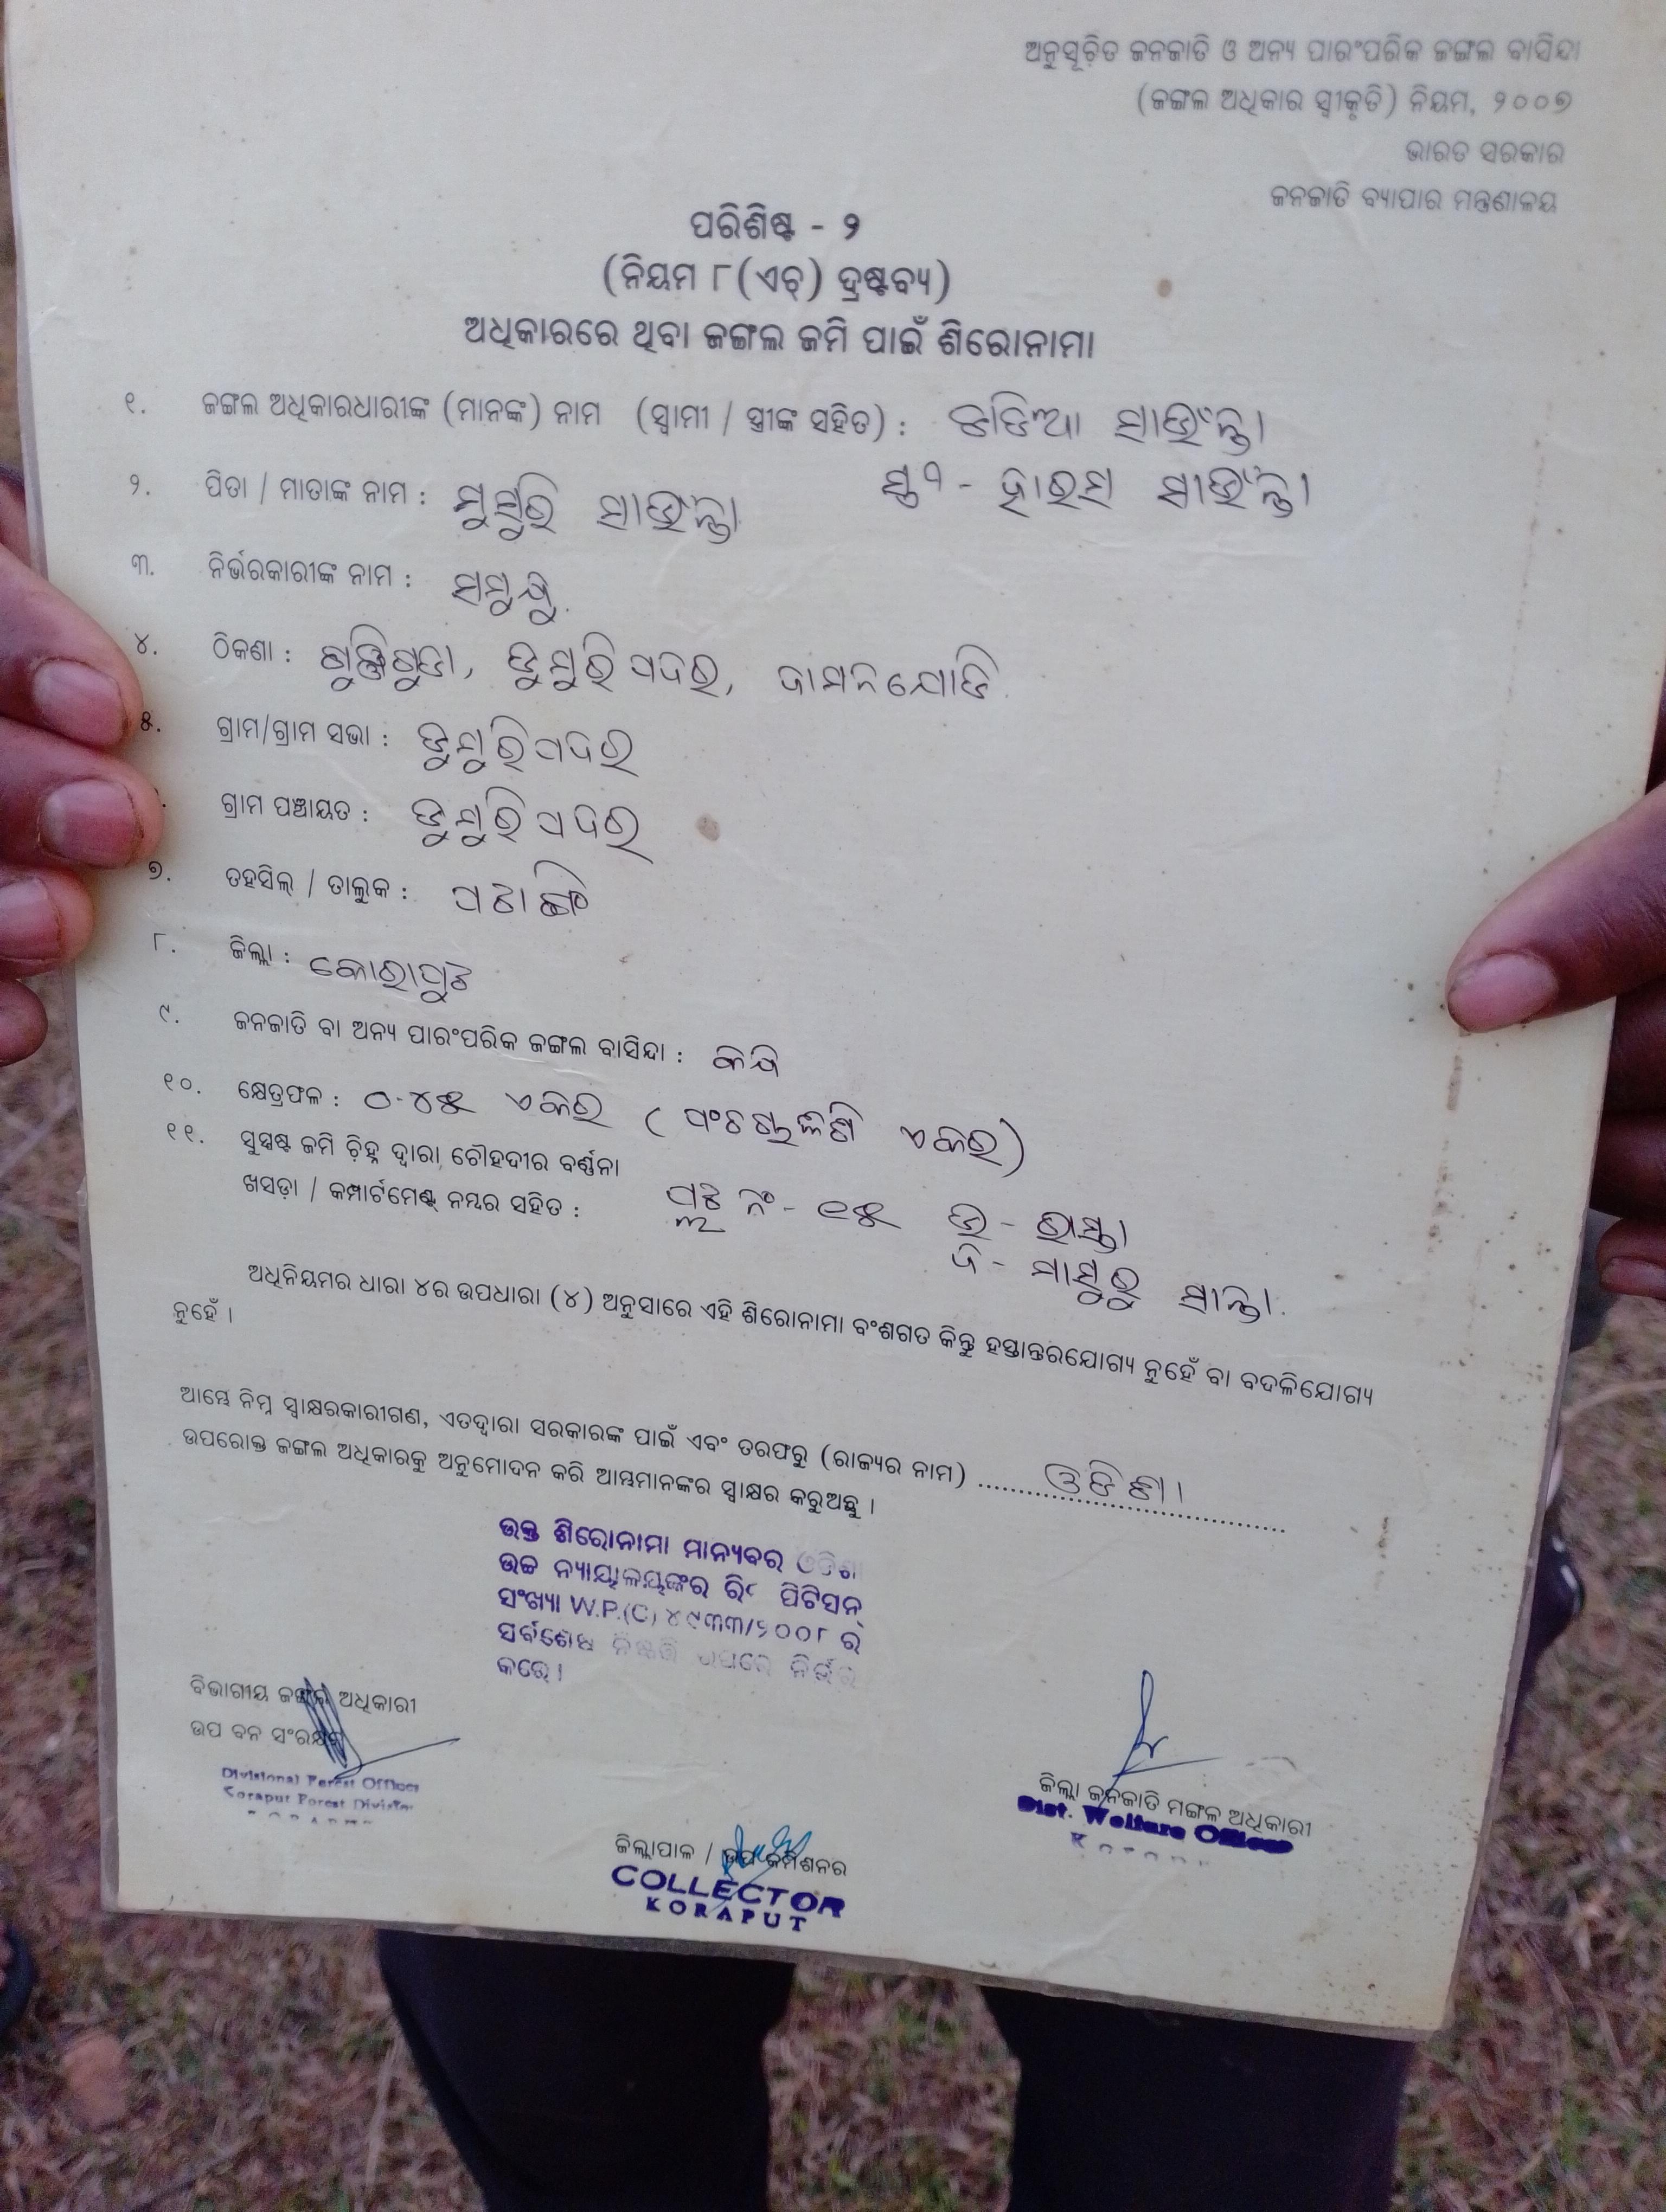 ଅନୁସୂଚିତ ଜନଜାତି ଓ ଅନ୍ୟ ପାରଂପରିକ ଜଙ୍ଗଲ ବାସିନ୍ଦା
(ଜଙ୍ଗଲ ଅଧିକାର ସ୍ୱୀକୃତି) ନିୟମ, ୨୦୦୭
ଭାରତ ସରକାର
ଜନଜାତି ବ୍ୟାପାର ମନ୍ତ୍ରଣାଳୟ
ପରିଶିଷ୍ଟ - ୨
(ନିୟମ ୮(ଏଚ୍) ଦ୍ରଷ୍ଟବ୍ୟ)
ଅଧିକାରରେ ଥିବା ଜଙ୍ଗଲ ଜମି ପାଇଁ ଶିରୋନାମା
୧. ଜଙ୍ଗଲ ଅଧିକାରଧାରୀଙ୍କ (ମାନଙ୍କ) ନାମ (ସ୍ୱାମୀ / ସ୍ତ୍ରୀଙ୍କ ସହିତ) : ସାଉଁନ୍ତା
ସ୍ତ୍ରୀ - ସାଉଁନ୍ତା
୨. ପିତା / ମାତାଙ୍କ ନାମ : ସାଉଁନ୍ତା
୩. ନିର୍ଭରକାରୀଙ୍କ ନାମ :
୪. ଠିକଣା : ଡୁମୁରିପଦର, ଦାମନଯୋଡି
୫. ଗ୍ରାମ/ଗ୍ରାମ ସଭା : ଡୁମୁରିପଦର
ଗ୍ରାମ ପଞ୍ଚାୟତ : ଡୁମୁରିପଦର
୭. ତହସିଲ୍ / ତାଲୁକ : ପଟାଙ୍ଗି
୮. ଜିଲ୍ଲା : କୋରାପୁଟ
୯. ଜନଜାତି ବା ଅନ୍ୟ ପାରଂପରିକ ଜଙ୍ଗଲ ବାସିନ୍ଦା :
୧୦. କ୍ଷେତ୍ରଫଳ : ୦.୪୫ ଏକର (ପଂଚଚାଳିଶି ଏକର)
୧୧. ସୁସ୍ପଷ୍ଟ ଜମି ଚିହ୍ନ ଦ୍ୱାରା ଚୌହଦୀର ବର୍ଣ୍ଣନା
ଖସଡ଼ା / କମ୍ପାର୍ଟମେଣ୍ଟ୍ ନମ୍ବର ସହିତ : ପ୍ଲଟ ନଂ - ୧୫ ଉ - ରାସ୍ତା
ଦ - ସାନ୍ତା
ଅଧିନିୟମର ଧାରା ୪ର ଉପଧାରା (୪) ଅନୁସାରେ ଏହି ଶିରୋନାମା ବଂଶଗତ କିନ୍ତୁ ହସ୍ତାନ୍ତରଯୋଗ୍ୟ ନୁହେଁ ବା ବଦଳିଯୋଗ୍ୟ
ନୁହେଁ ।
ଆମ୍ଭେ ନିମ୍ନ ସ୍ୱାକ୍ଷରକାରୀଗଣ, ଏତଦ୍ୱାରା ସରକାରଙ୍କ ପାଇଁ ଏବଂ ତରଫରୁ (ରାଜ୍ୟର ନାମ) ........ ଓଡିଶା
ଉପରୋକ୍ତ ଜଙ୍ଗଲ ଅଧିକାରକୁ ଅନୁମୋଦନ କରି ଆମ୍ଭମାନଙ୍କର ସ୍ୱାକ୍ଷର କରୁଅଛୁ ।
ଉକ୍ତ ଶିରୋନାମା ମାନ୍ୟବର ଓଡିଶା
ଉଚ୍ଚ ନ୍ୟାୟାଳୟଙ୍କର ରିଟ ପିଟିସନ୍
ସଂଖ୍ୟା W.P.(C) ୪୯୩୩/୨୦୦୮ ର
ସର୍ବଶେଷ ଉପରେ ନିର୍ଭର
କରେ।
ବିଭାଗୀୟ ଜଙ୍ଗଲ ଅଧିକାରୀ
ଉପ ବନ ସଂରକ୍ଷକ
Divisional Forest Officer
Koraput Forest Division
ଜିଲ୍ଲା ଜନଜାତି ମଙ୍ଗଳ ଅଧିକାରୀ
Dist. Welfare Officer
ଜିଲ୍ଲାପାଳ / ଉପ କମିଶନର
COLLECTOR
KORAPUT